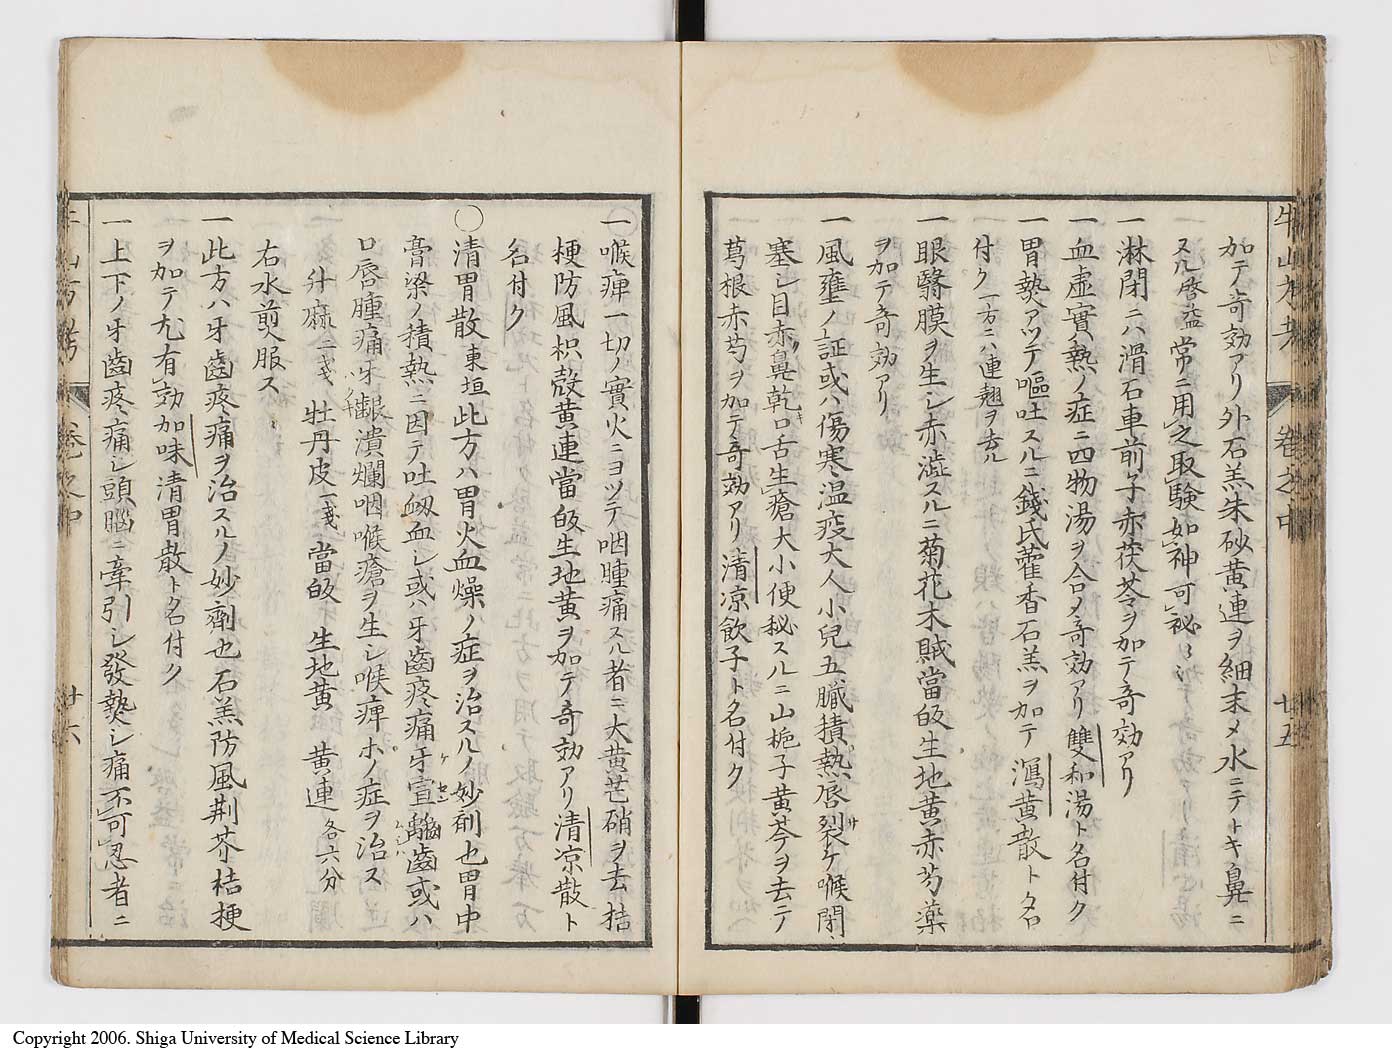 牛山方考 卷之中 廿五
加テ奇効アリ外石羔朱砂黄連ヲ細末メ水ニテトキ鼻ニ
スル啓益常ニ用之取験如神可祕〻〻
一淋閉ニハ滑石車前子赤茯苓ヲ加テ奇効アリ
一血虚實熱ノ症ニ四物湯ヲ合メ奇効アリ雙和湯ト名付ク
一胃熱アツテ嘔吐スルニ錢氏藿香石羔ヲ加テ瀉黄散ト名
付ク一方ニハ連翹ヲ去ル
一眼翳膜ヲ生シ赤澁スルニ菊花木賊當皈生地黄赤芍薬
ヲ加テ奇効アリ
一風壅ノ証或ハ傷寒温疫大人小兒五臓積熱唇裂ケ喉閉
塞シ目赤鼻乾口舌生瘡大小便秘スルニ山梔子黄芩ヲ去テ
葛根赤芍ヲ加テ奇効アリ清凉飲子ト名付ク
一喉痺一切ノ實火ニヨツテ咽腫痛スル者ニ大黄芒硝ヲ去桔
梗防風枳殻黄連當皈生地黄ヲ加テ奇効アリ清凉散ト
名付ク
〇清胃散東垣此方ハ胃火血燥ノ症ヲ治スルノ妙剤也胃中
膏梁ノ積熱ニ因テ吐衂血シ或ハ牙齒疼痛牙宣齲齒或ハ
口唇腫痛牙齦潰爛咽喉瘡ヲ生シ喉痺ホノ症ヲ治ス
升麻二戔 牡丹皮一戔 當皈 生地黄 黄連各六分
右水煎〆服ス
一此方ハ牙齒疼痛ヲ治スルノ妙劑也石羔防風荆芥桔梗
ヲ加テ尤有効加味清胃散ト名付ク
一上下ノ牙齒疼痛シ頭腦ニ牽引シ發熱シ痛不可忍者ニ
牛山方考 卷之中 廿六
Copyright 2006. Shiga University of Medical Science Library